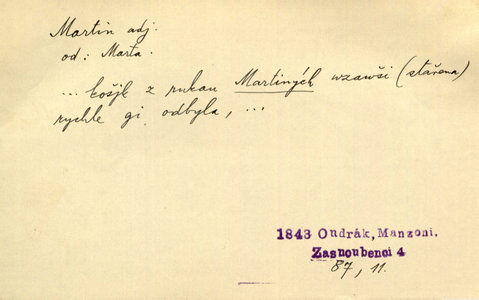 Martin adj.
od: Marta.
... košjk z rukau Martiných wzawši (stařena)
rychle gi odbyla, ...
1843 Ondrák, Manzoni.
Zasnoubenci 4
87, 11.